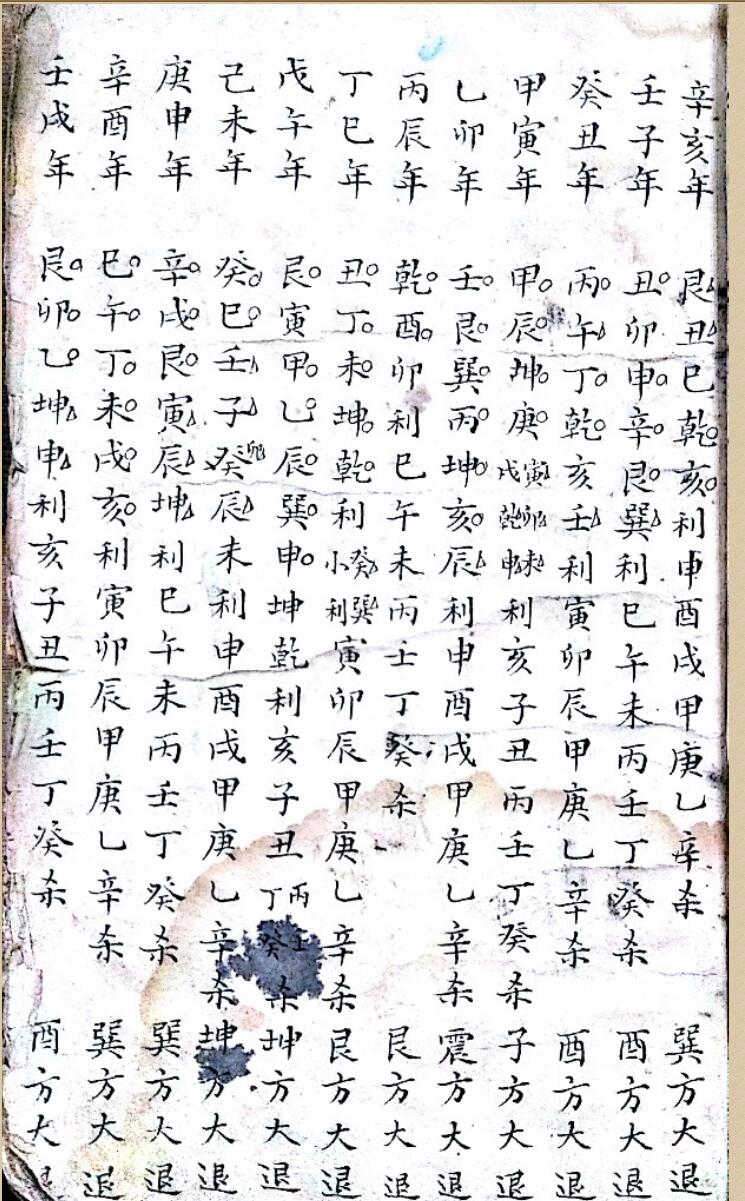 辛亥年 艮丑巳乾亥利申酉戌甲庚乙辛杀 巽方大退
壬子年 丑卯申辛艮巽利巳午未丙壬丁癸杀 酉方大退
癸丑年 丙午丁乾亥壬利寅卯辰甲庚乙辛杀 酉方大退
甲寅年 甲辰坤庚寅卯未戌乾申利亥子丑丙壬丁癸杀 子方大退
乙卯年 壬艮巽丙坤亥辰利申酉戌甲庚乙辛杀 震方大退
丙辰年 乾酉卯利巳午未丙壬丁癸杀 艮方大退
丁巳年 丑丁未坤乾利癸巽小利寅卯辰甲庚乙辛杀 艮方大退
戊午年 艮寅甲乙辰巽申坤乾利亥子丑丙壬丁癸杀 坤方大退
己未年 癸巳壬子癸辰未利申酉戌甲庚乙辛杀 坤方大退
庚申年 辛戌艮寅辰坤利巳午未丙壬丁癸杀 巽方大退
辛酉年 巳午丁未戌亥利寅卯辰甲庚乙辛杀 巽方大退
壬戌年 艮卯乙坤申利亥子丑丙壬丁癸杀 酉方大